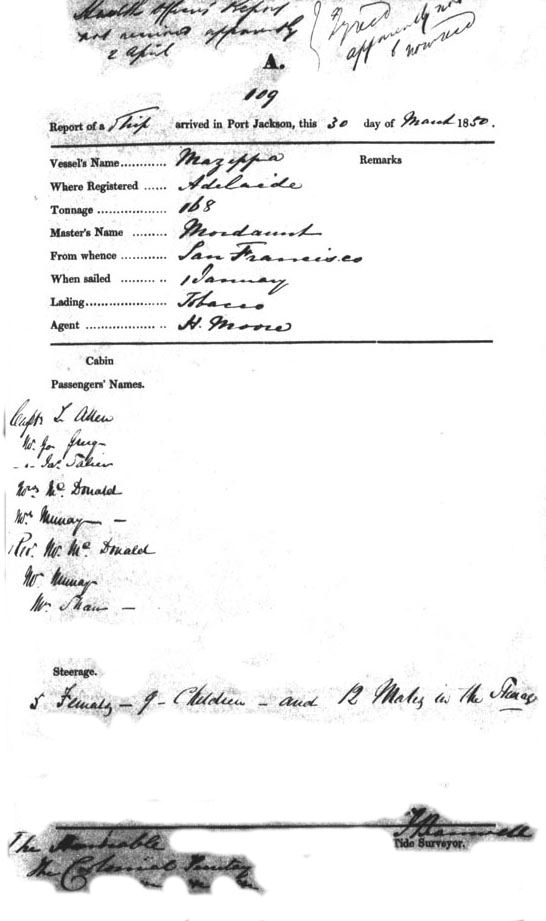 Health Officer's Report
not received apparently
2 April
apparently not
received
A.
109
Report of a Ship arrived in Port Jackson, this 30 day of March 1850.
Vessel's Name............ Mazeppa Remarks
Where Registered ...... Adelaide
Tonnage .................. 168
Master's Name ......... Mordaunt
From whence ............ San Francisco
When sailed ......... .. 1 January
Lading..................... Tobacco
Agent .................. .. H. Moore
Cabin
Passengers' Names.
Capt T. Allen
Mr. Jn
Jas.
Mrs Mc Donald
Mrs Murray —
Rev. Mr. Mc Donald
Mr Murray
Mr Shaw —
Steerage.
5 Females – 9 – Children – and 12 Males in the Steerage
Tide Surveyor.
The Honorable
The Colonial Secretary